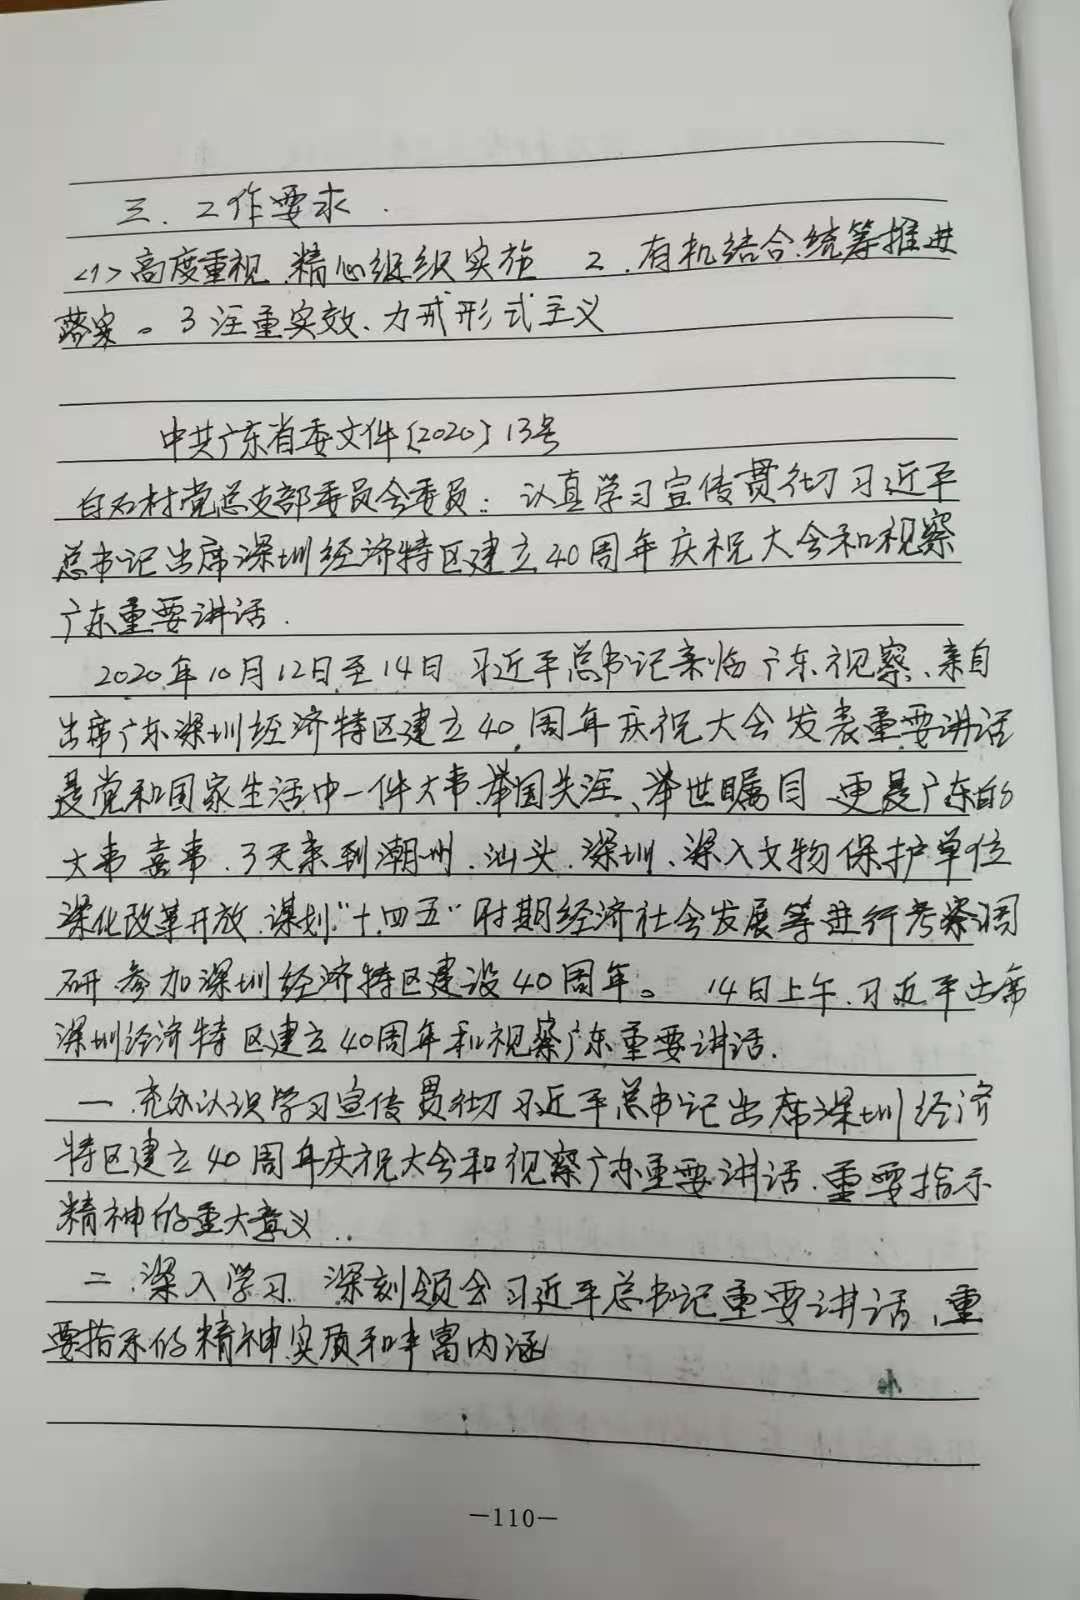 三、工作要求.
<1>高度重视、精心组织实施 2、有机结合、统筹推进
落实。3注重实效、力戒形式主义
中共广东省委文件〔2020〕13号
白石村党总支部委员会委员：认真学习宣传贯彻习近平
总书记出席深圳经济特区建立40周年庆祝大会和视察
广东重要讲话.
2020年10月12日至14日 习近平总书记亲临广东视察、亲自
出席广东深圳经济特区建立40周年庆祝大会发表重要讲话
是党和国家生活中一件大事、举国关注、举世瞩目、更是广东的
大事喜事、3天来到潮州、汕头、深圳、深入文物保护单位
深化改革开放、谋划“十四五”时期经济社会发展等进行考察调
研、参加深圳经济特区建设40周年。 14日上午、习近平出席
深圳经济特区建立40周年和视察广东重要讲话.
一、充分认识学习宣传贯彻习近平总书记出席深圳经济
特区建立40周年庆祝大会和视察广东重要讲话、重要指示
精神的重大意义..
二、深入学习、深刻领会习近平总书记重要讲话、重
要指示的精神实质和丰富内涵
—110—